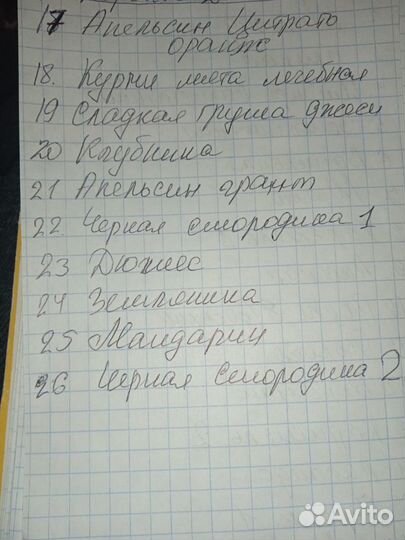 17 Апельсин Цитрать
оранж
18. Курми мята лечебная
19 Сладкая груша джоси
20 Клубника
21 Апельсин грант
22 Черная смородина 1
23 Дюшес
24 Земляника
25 Мандарин
26 Черная Смородина 2
Avito